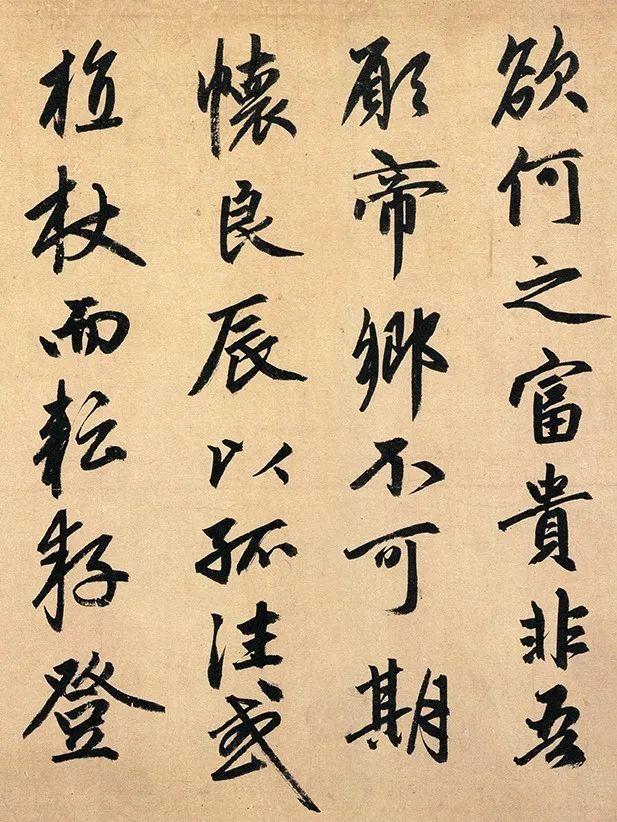 欲何之富貴非吾
願帝鄉不可期
懷良辰以孤往或
植杖而耘耔登